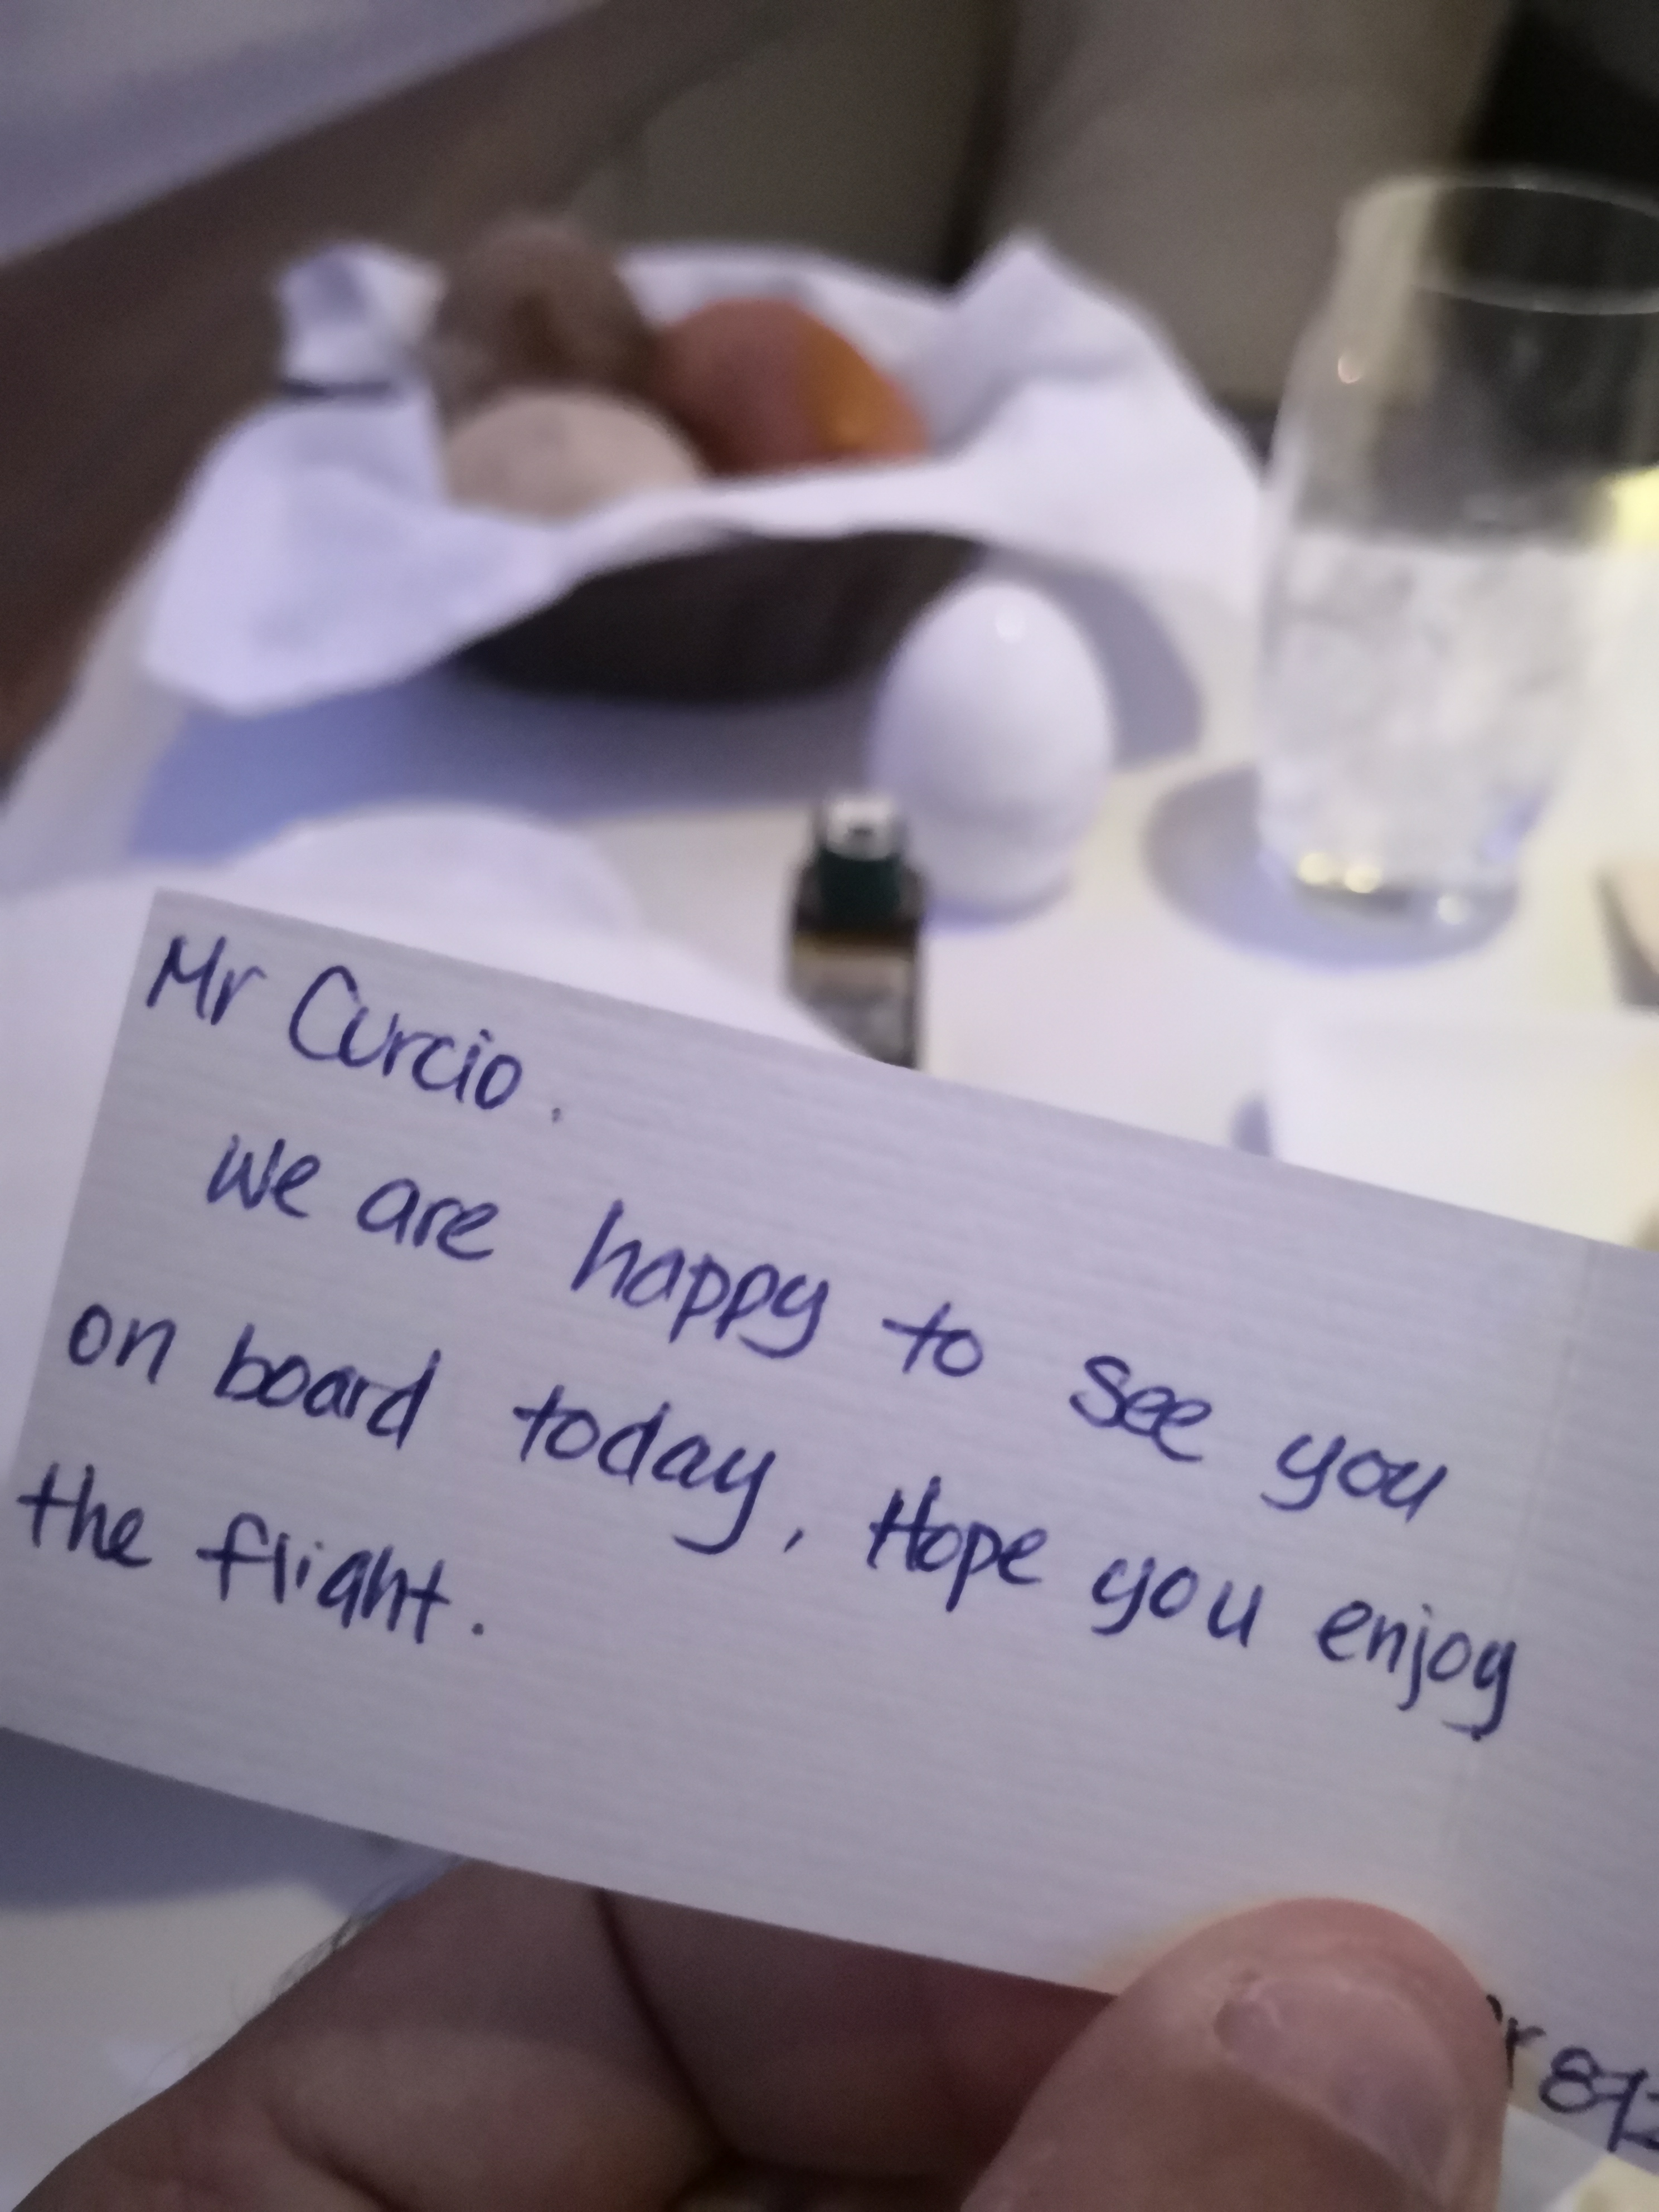 Mr Curcio.
We are happy to see you
on board today, Hope you enjoy
the flight.